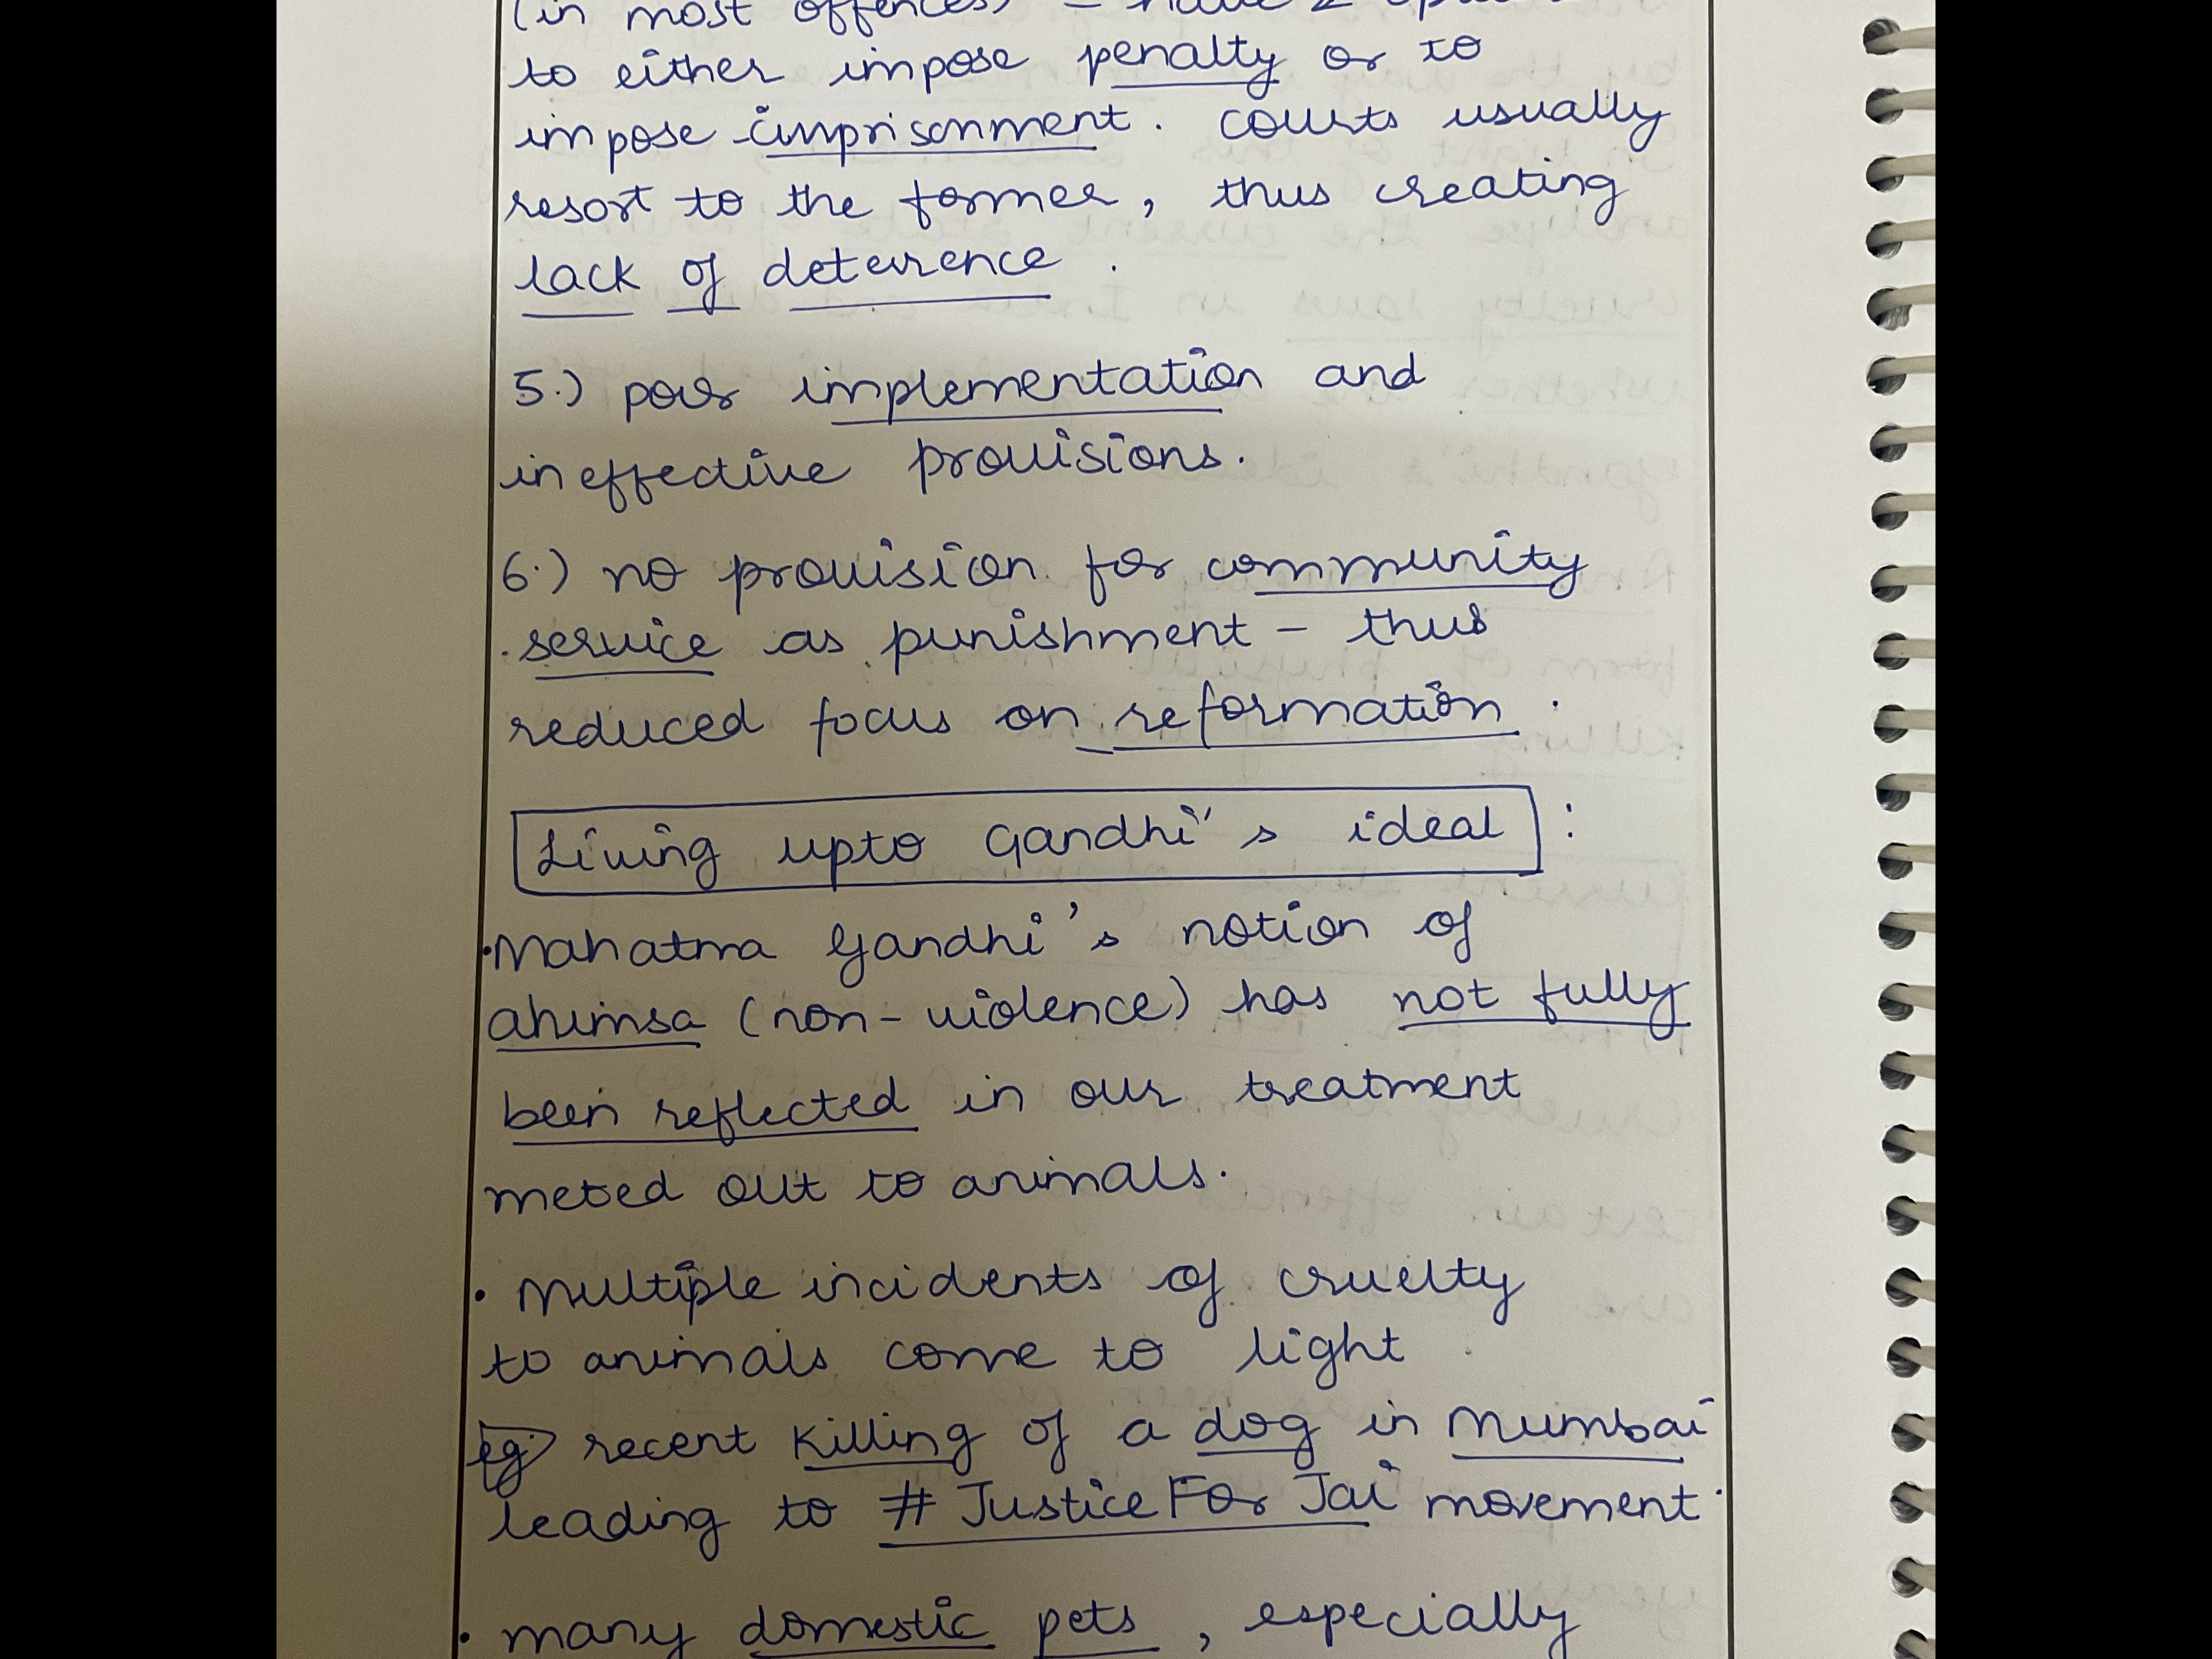 (in most offences) - have 2
to either impose penalty or to
impose imprisonment. courts usually
resort to the former, thus creating
lack of deterrence.
5.) poor implementation and
ineffective provisions.
6.) no provision for community
service as punishment - thus
reduced focus on reformation.
Living upto Gandhi's ideal :
• Mahatma Gandhi's notion of
ahimsa (non-violence) has not fully
been reflected in our treatment
meted out to animals.
• Multiple incidents of cruelty
to animals come to light
eg recent killing of a dog in Mumbai
leading to #JusticeForJai movement.
• many domestic pets, especially